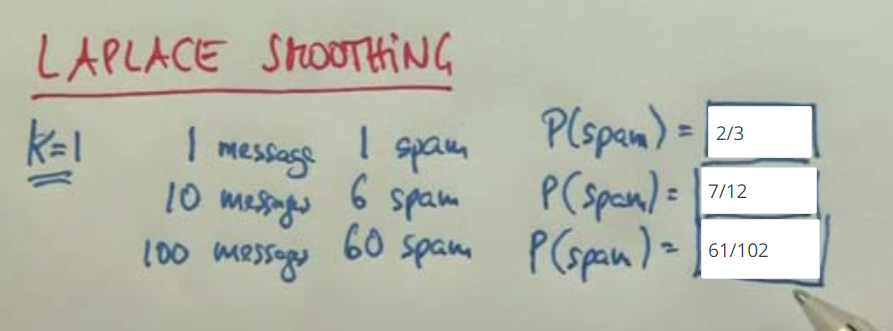 LAPLACE SMOOTHING
K=1 1 message 1 spam P(spam) = 2/3
10 messages 6 spam P(spam) = 7/12
100 messages 60 spam P(spam) = 61/102